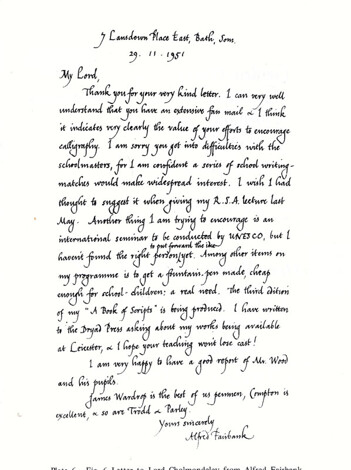 7 Lansdown Place East, Bath, Som.
29 . 11 . 1951
My Lord,
Thank you for your very kind letter. I can very well
understand that you have an extensive fan mail & I think
it indicates very clearly the value of your efforts to encourage
calligraphy. I am sorry you got into difficulties with the
schoolmasters, for I am confident a series of school writing-
matches would make widespread interest. I wish I had
thought to suggest it when giving my R.S.A. lecture last
May. Another thing I am trying to encourage is an
international seminar to be conducted by UNESCO, but I
to put forward the idea
haven't found the right person yet. Among other items on
my programme is to get a fountain-pen made, cheap
enough for school-children: a real need. The third edition
of my "A Book of Scripts" is being produced. I have written
to the Dryad Press asking about my works being available
at Leicester, & I hope your teaching won't lose east!
I am very happy to have a good report of Mr. Wood
and his pupils.
James Wardrop is the best of us penmen, Compton is
excellent, & so are Trodd & Parley.
Yours sincerely
Alfred Fairbank
Plate 6. Fig. 6 Letter to Lord Cholmondeley from Alfred Fairbank